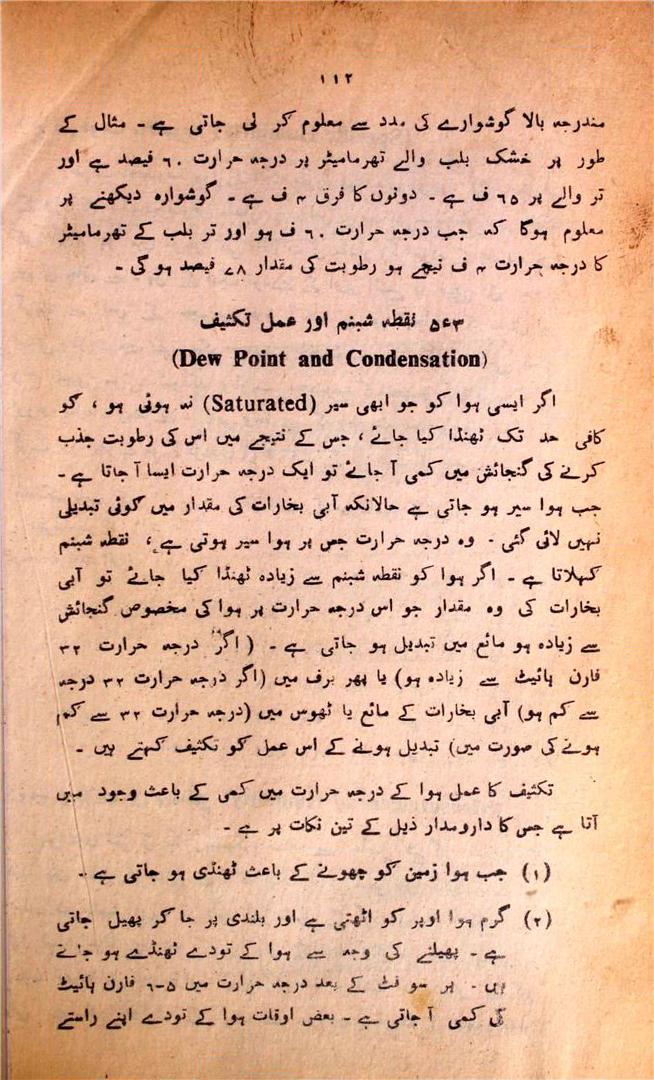 ۱۱۲
مندرجہ بالا گوشوارے کی مدد سے معلوم کر لی جاتی ہے ۔ مثال کے
طور پر خشک بلب والے تھرمامیٹر پر درجہ حرارت ۶۰ فیصد ہے اور
تر والے پر ۶۵ ف ہے ۔ دونوں کا فرق ۴ ف ہے ۔ گوشوارہ دیکھنے پر
معلوم ہوگا کہ جب درجہ حرارت ۶۰ ف ہو اور تر بلب کے تھرمامیٹر
کا درجہ حرارت ۴ ف نیچے ہو رطوبت کی مقدار ۷۸ فیصد ہو گی ۔
۵ء۳ نقطہ شبنم اور عمل تکثیف
(Dew Point and Condensation)
اگر ایسی ہوا کو جو ابھی سیر (Saturated) نہ ہوئی ہو ، کو
کافی حد تک ٹھنڈا کیا جائے ، جس کے نتیجے میں اس کی رطوبت جذب
کرنے کی گنجائش میں کمی آ جائے تو ایک درجہ حرارت ایسا آ جاتا ہے ۔
جب ہوا سیر ہو جاتی ہے حالانکہ آبی بخارات کی مقدار میں کوئی تبدیلی
نہیں لائی گئی ۔ وہ درجہ حرارت جس پر ہوا سیر ہوتی ہے ، نقطہ شبنم
کہلاتا ہے ۔ اگر ہوا کو نقطہ شبنم سے زیادہ ٹھنڈا کیا جائے تو آبی
بخارات کی وہ مقدار جو اس درجہ حرارت پر ہوا کی مخصوص گنجائش
سے زیادہ ہو مائع میں تبدیل ہو جاتی ہے ۔ (اگر درجہ حرارت ۳۲
فارن ہائیٹ سے زیادہ ہو) یا پھر برف میں (اگر درجہ حرارت ۳۲ درجہ
سے کم ہو) آبی بخارات کے مائع یا ٹھوس میں (درجہ حرارت ۳۲ سے کم
ہونے کی صورت میں) تبدیل ہونے کے اس عمل کو تکثیف کہتے ہیں ۔
تکثیف کا عمل ہوا کے درجہ حرارت میں کمی کے باعث وجود میں
آتا ہے جس کا دارومدار ذیل کے تین نکات پر ہے ۔
(۱) جب ہوا زمین کو چھونے کے باعث ٹھنڈی ہو جاتی ہے ۔
(۲) گرم ہوا اوپر کو اٹھتی ہے اور بلندی پر جا کر پھیل جاتی
ہے ۔ پھیلنے کی وجہ سے ہوا کے تودے ٹھنڈے ہو جاتے
ہیں ۔ ہر سو فٹ کے بعد درجہ حرارت میں ۵-۶ فارن ہائیٹ
کی کمی آ جاتی ہے ۔ بعض اوقات ہوا کے تودے اپنے راستے